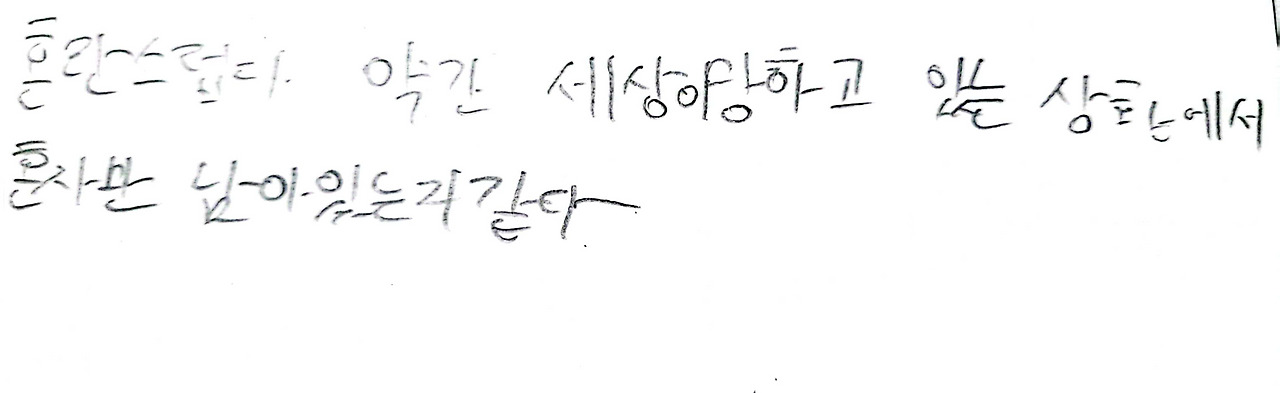 혼란스럽다. 약간 세상이망하고 있는 상황에서
혼자만 남아있는거같다